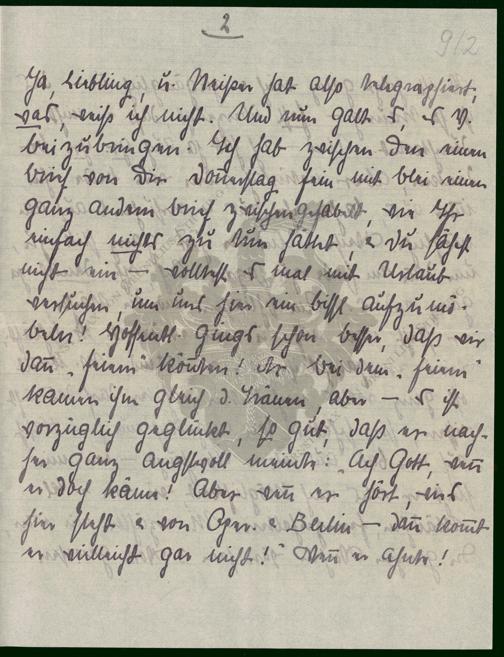 2
9/2
Ja, Liebling, u. Weißer hat also telegraphiert,
was, weiß ich nicht. Und nun galt es, es V.
beizubringen. Ich hab zwischen den einen
brief von Dir Donnerstag fein mit blei einen
ganz andern brief zwischengehabt, wie Ihr
einfach nichts zu tun hättet, & Du sähest
nicht ein — wolltest es mal mit Urlaub
versuchen, um uns hier ein bissl aufzumö-
beln! Hoffentl. gings schon besser, daß wir
dann „feiern“ könnten! Als bei dem „feiern“
kamen ihm gleich d. Tränen, aber — es ist
vorzüglich geglückt, so gut, daß er nach-
her ganz angstvoll meinte: „Ach Gott, wenn
er doch käme! Aber wenn er hört, wies
hier steht & von Oper. & Berlin — dann kommt
er vielleicht gar nicht!“ Wenn er ahnte!